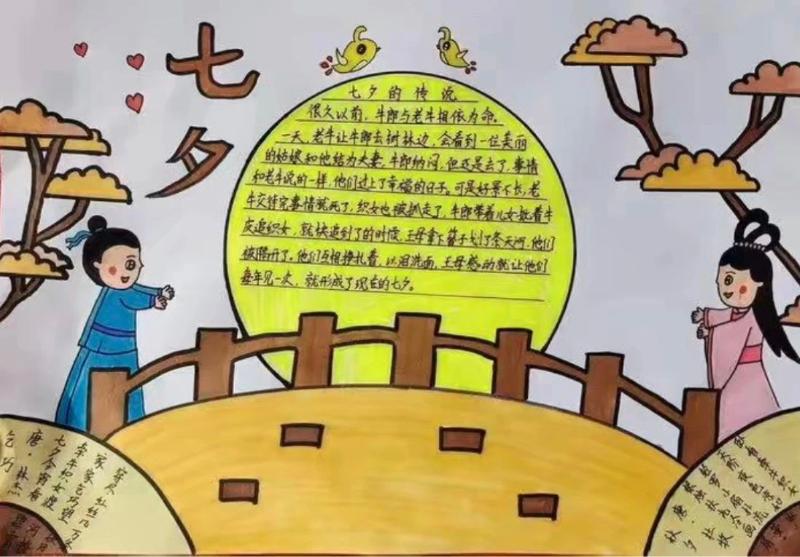 七夕
七夕的传说
很久以前,牛郎与老牛相依为命。
一天,老牛让牛郎去树林边,会看到一位美丽
的姑娘和他结为夫妻。牛郎纳闷,但还是去了,事情
和老牛说的一样,他们过上了幸福的日子。可是好景不长,老
牛交待完事情就死了,织女也被抓走了,牛郎带着儿女披着牛
皮追织女,就快追到了的时候,王母拿下簪子划了条天河,他们
被隔开了。他们互相挣扎着,以泪洗面,王母感动就让他们
每年见一次,就形成了现在的七夕。
乞巧
唐·林杰
七夕今宵看
牵牛织女渡
家家乞巧望
穿尽红丝几万
秋夕
唐·杜牧